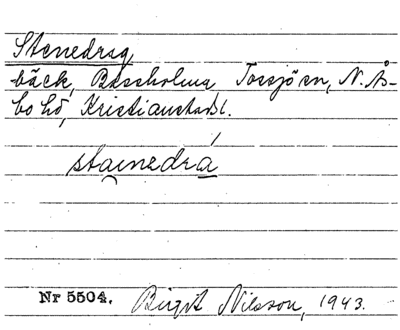 Stenedrag
bäck, Boxholma, Tossjön, N. Ås-
bo hd, Kristianstads l.
stainedrá
Nr 5504. Birgit Nilsson, 1943.